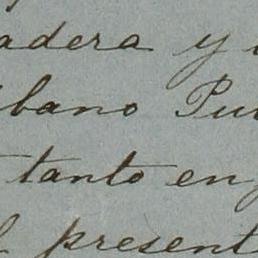 adera y
bano Pu
tanto en
presen